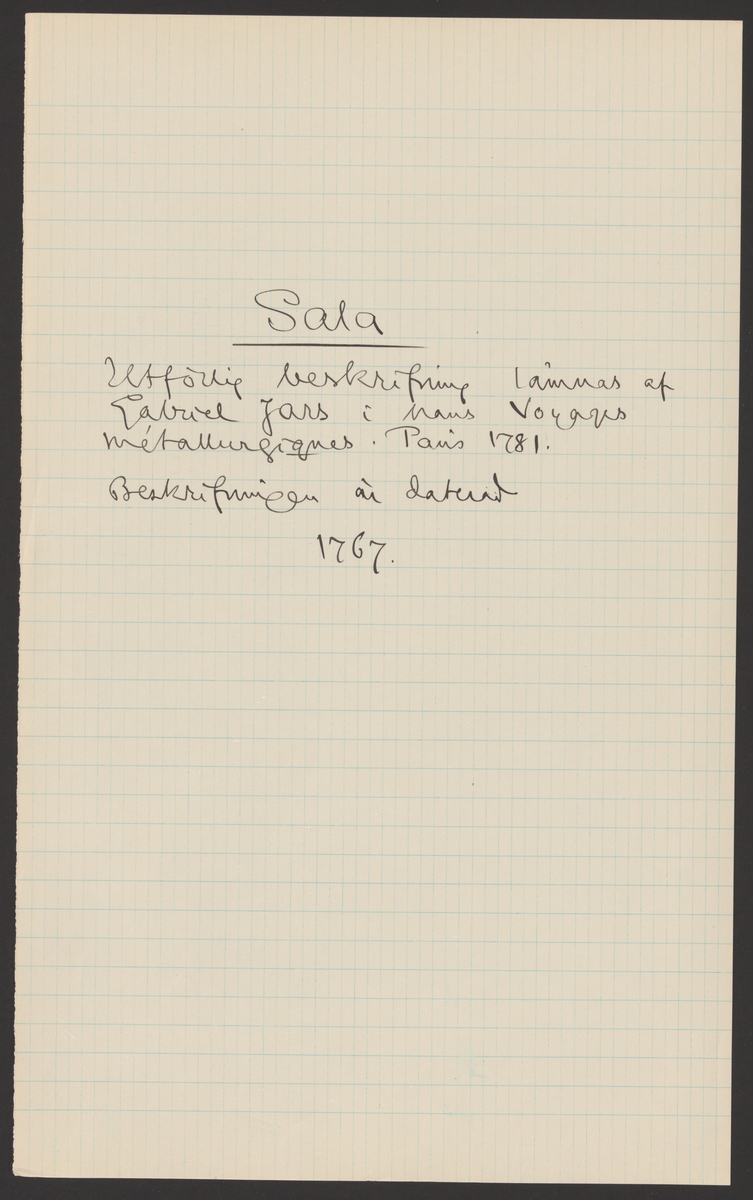 Sala
Utförlig beskrifning lämnas af
Gabriel Jars i hans Voyages
métallurgiques. Paris 1781.
Beskrifningen är daterad
1767.